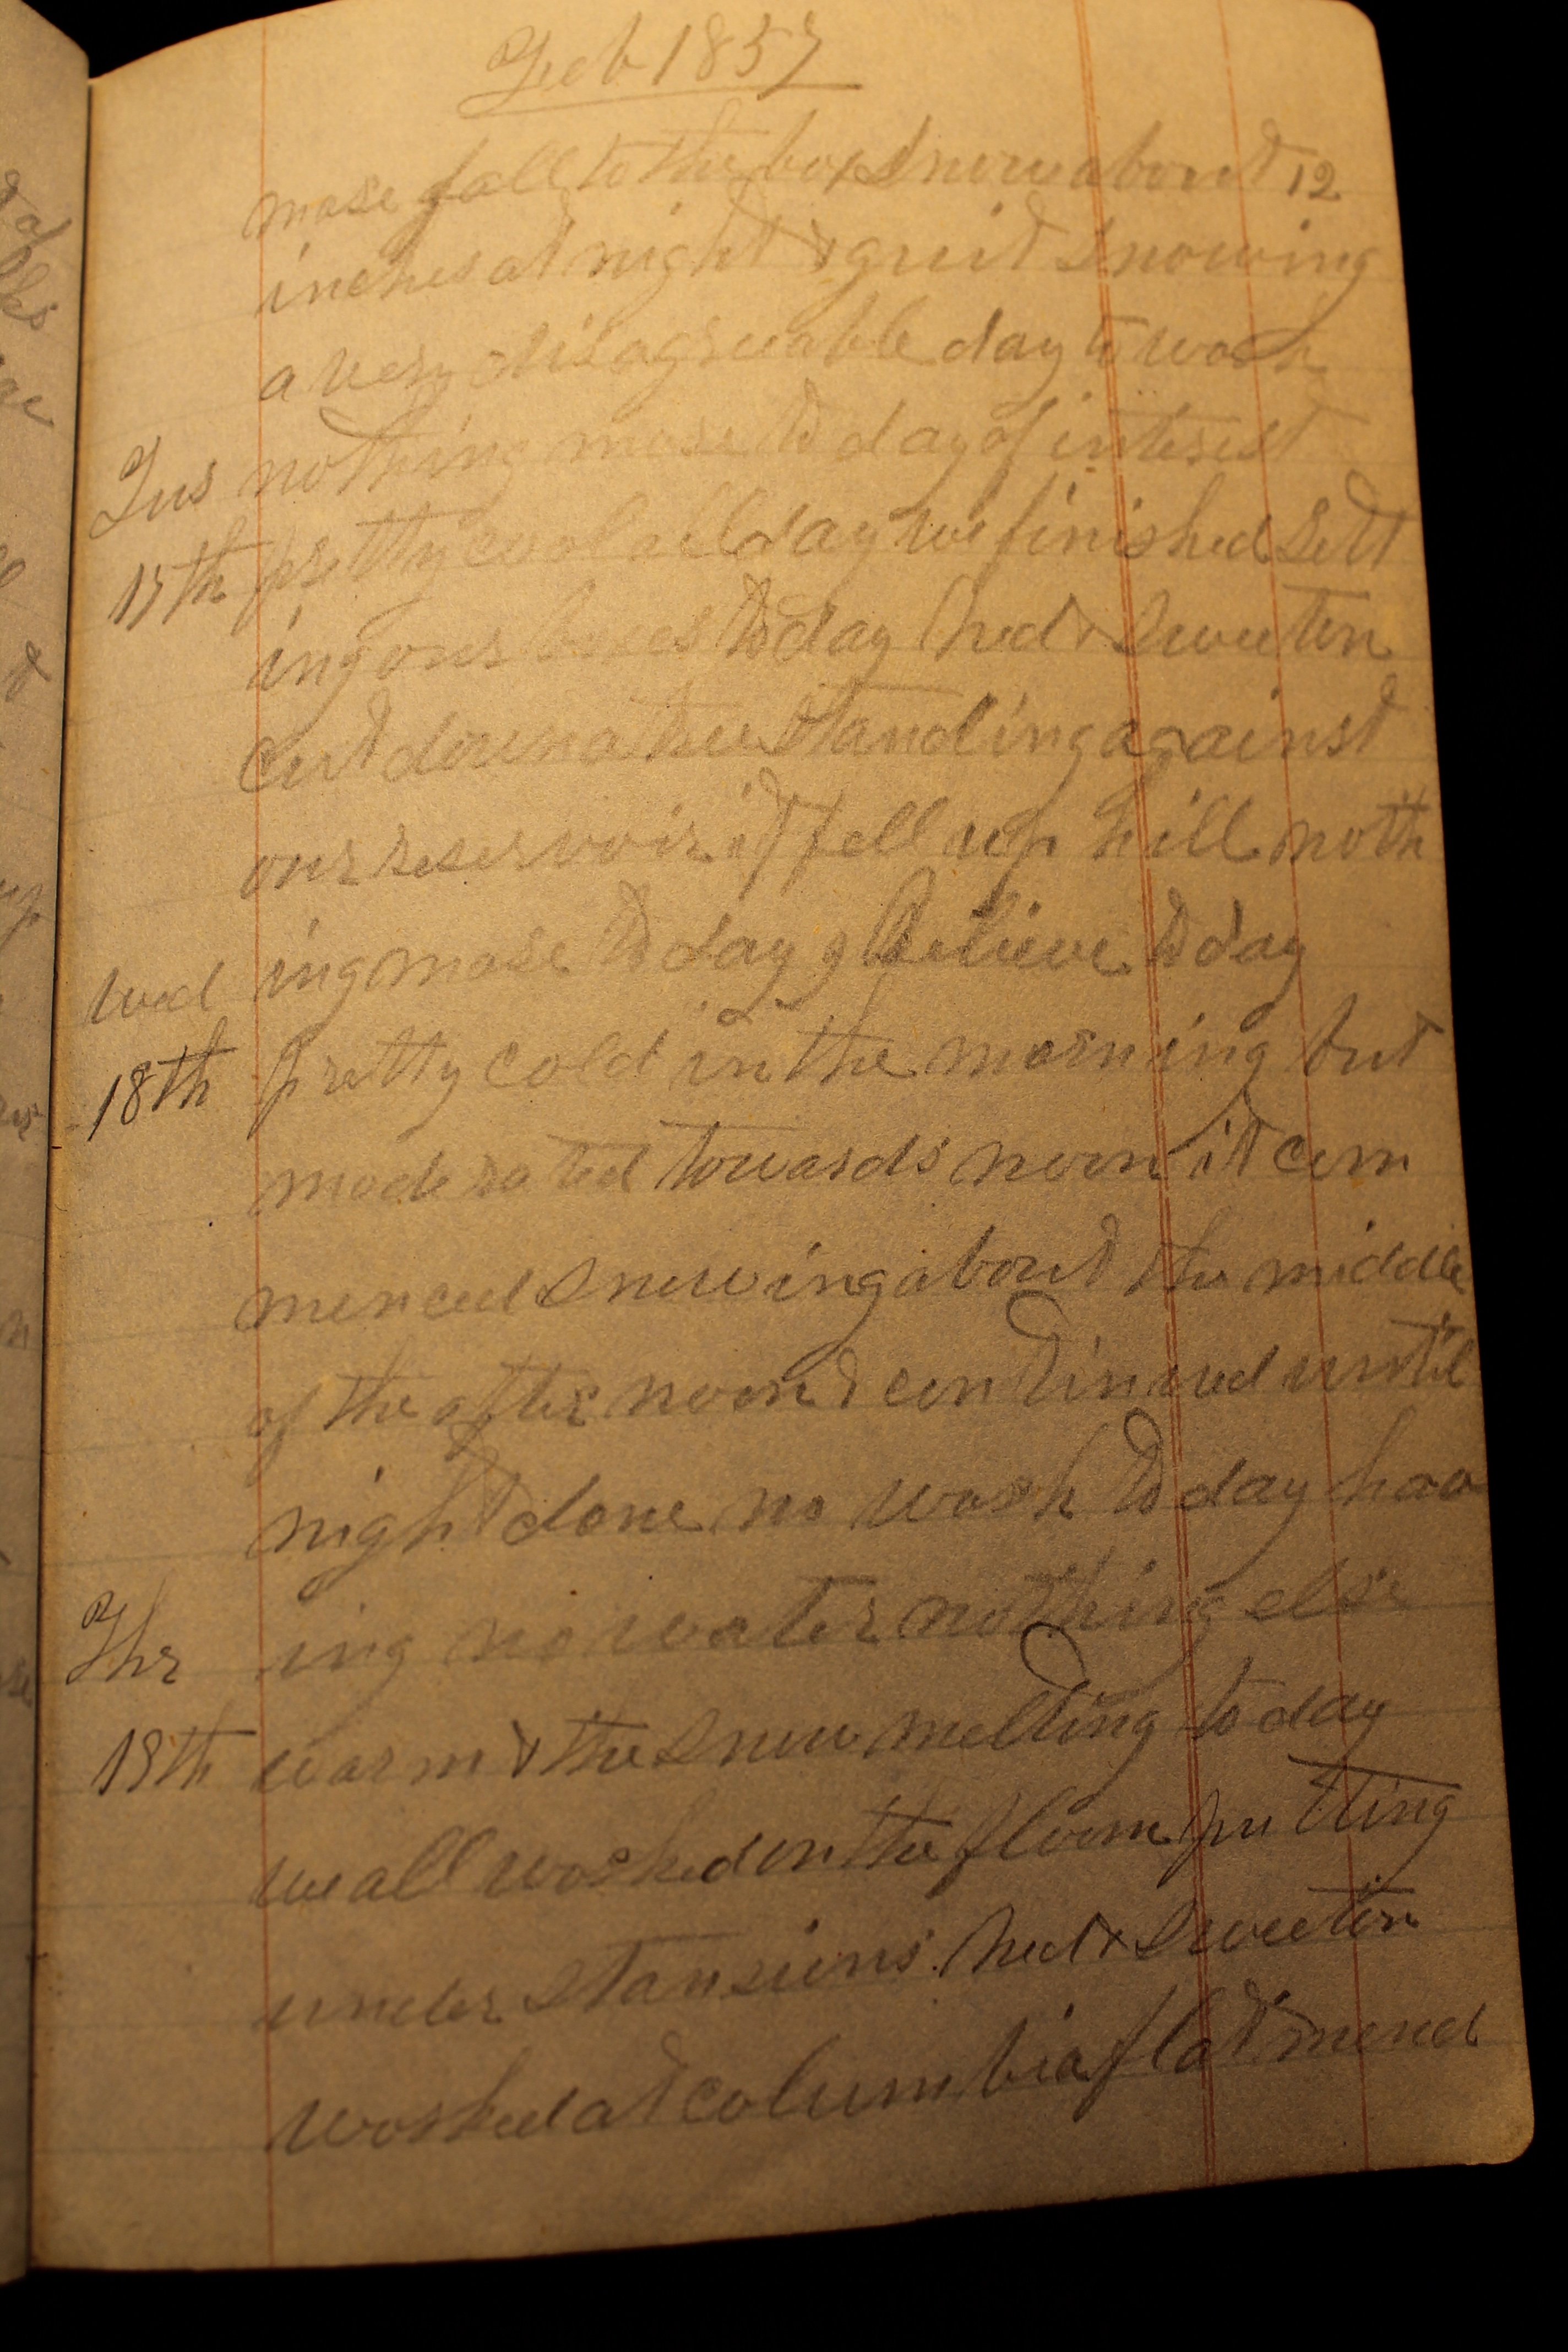 Feb 1857
more fall to the box snow about 12
inches at night & quit snowing
a very disagreeable day to work
Tus nothing more to day of interest
17th pretty cool all day we finished sett
ing our boxes to day hed & Sweeten
cut down a tree standing against
our reservoir it fell up hill noth
Wed ing more to day I believe to day
18th pretty cold in the morning but
moderated towards noon it com
menced snowing about the middle
of the after noon & continued until
night done no work to day hav
Thr ing no water nothing else
19th warm & the snow melting to day
we all worked on the floom putting
under stansions hed & Sweeten
worked at columbia flat mend